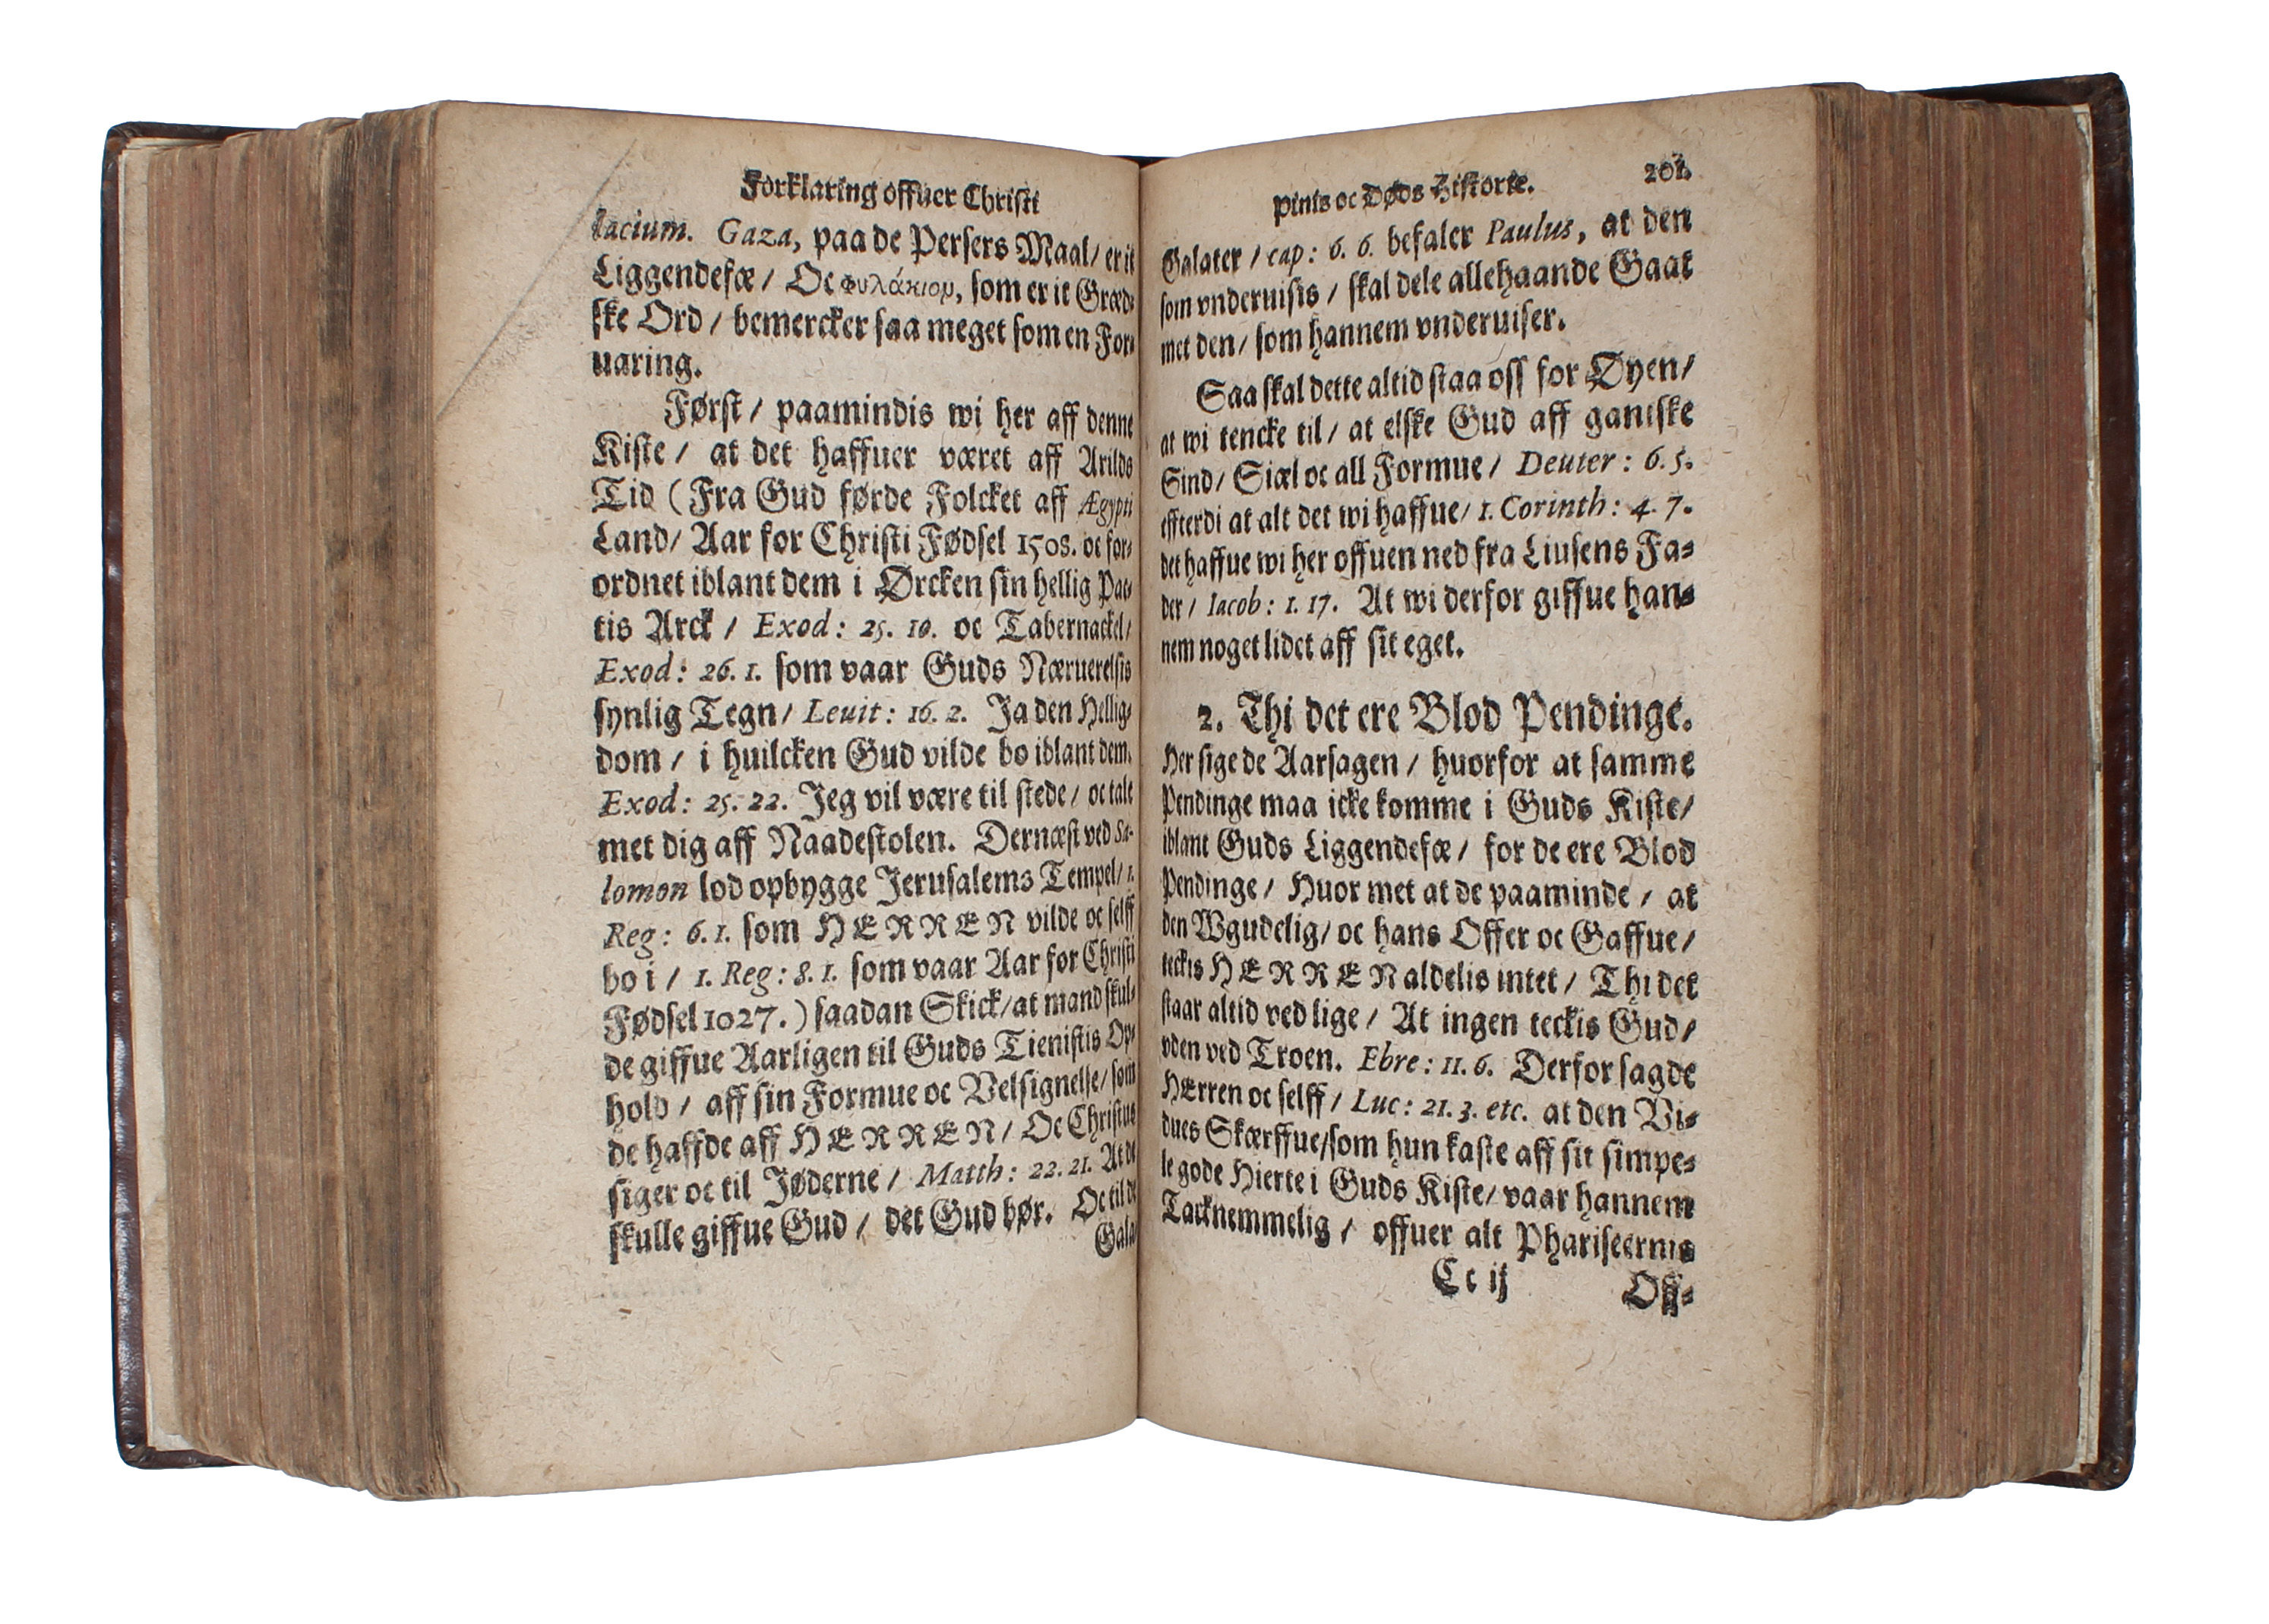 Forklaring offuer Christi
lacium. Gaza, paa de Persers Maal/ er it
Liggendefæ/ Oc Φυλάκιον, som er it Græd⸗
ske Ord / bemercker saa meget som en For⸗
uaring.
Først / paamindis wi her aff denne
Kiste / at det haffuer været aff Arilds
Tid (Fra Gud førde Folcket aff Ægypti
Land/ Aar for Christi Fødsel 1508. oc for⸗
ordnet iblant dem i Ørcken sin hellig Pac⸗
tis Arck / Exod: 25. 10. oc Tabernackel/
Exod: 26. 1. som vaar Guds Næruerelsis
synlig Tegn/ Leuit: 16. 2. Ja den Hellig⸗
dom / i huilcken Gud vilde bo iblant dem.
Exod: 25. 22. Jeg vil være til stede / oc tale
met dig aff Naadestolen. Dernæst ved Sa-
lomon lod opbygge Jerusalems Tempel/ 1.
Reg: 6. 1. som HERREN vilde oc selff
bo i / 1. Reg: 8. 1. som vaar Aar for Christi
Fødsel 1027.) saadan Skick/at mand skul⸗
de giffue Aarligen til Guds Tienistis Op⸗
hold / aff sin Formue oc Velsignelse/ som
de haffde aff HERREN/ Oc Christus
siger oc til Jøderne / Matth: 22. 21. At de
skulle giffue Gud / det Gud bør. Oc til de
Gala⸗
Pinis oc Døds Historie.
Galater / cap: 6. 6. befaler Paulus, at den
som vnderuisis / skal dele allehaande Gaat
met den/ som hannem vnderuiser.
Saa skal dette altid staa oss for Øyen/
at wi tencke til/ at elske Gud aff gantske
Sind/ Siæl oc all Formue/ Deuter: 6. 5.
effterdi at alt det wi haffue/ 1. Corinth: 4. 7.
det haffue wi her offuen ned fra Liusens Fa⸗
der / Iacob: 1. 17. At wi derfor giffue han⸗
nem noget lidet aff sit eget.
2. Thi det ere Blod Pendinge.
Her sige de Aarsagen / huorfor at samme
Pendinge maa icke komme i Guds Kiste/
iblant Guds Liggendefæ/ for de ere Blod
Pendinge / Huor met at de paaminde / at
den Wgudelig/ oc hans Offer oc Gaffue/
teckis HERREN aldelis intet / Thi det
staar altid ved lige / At ingen teckis Gud/
vden ved Troen. Ebre: 11. 6. Derfor sagde
HErren oc selff / Luc: 21. 3. etc. at den Vi⸗
dues Skærffue/som hun kaste aff sit simpe⸗
le gode Hierte i Guds Kiste/ vaar hannem
Tacknemmelig / offuer alt Phariseernis
Cc ij
Off⸗